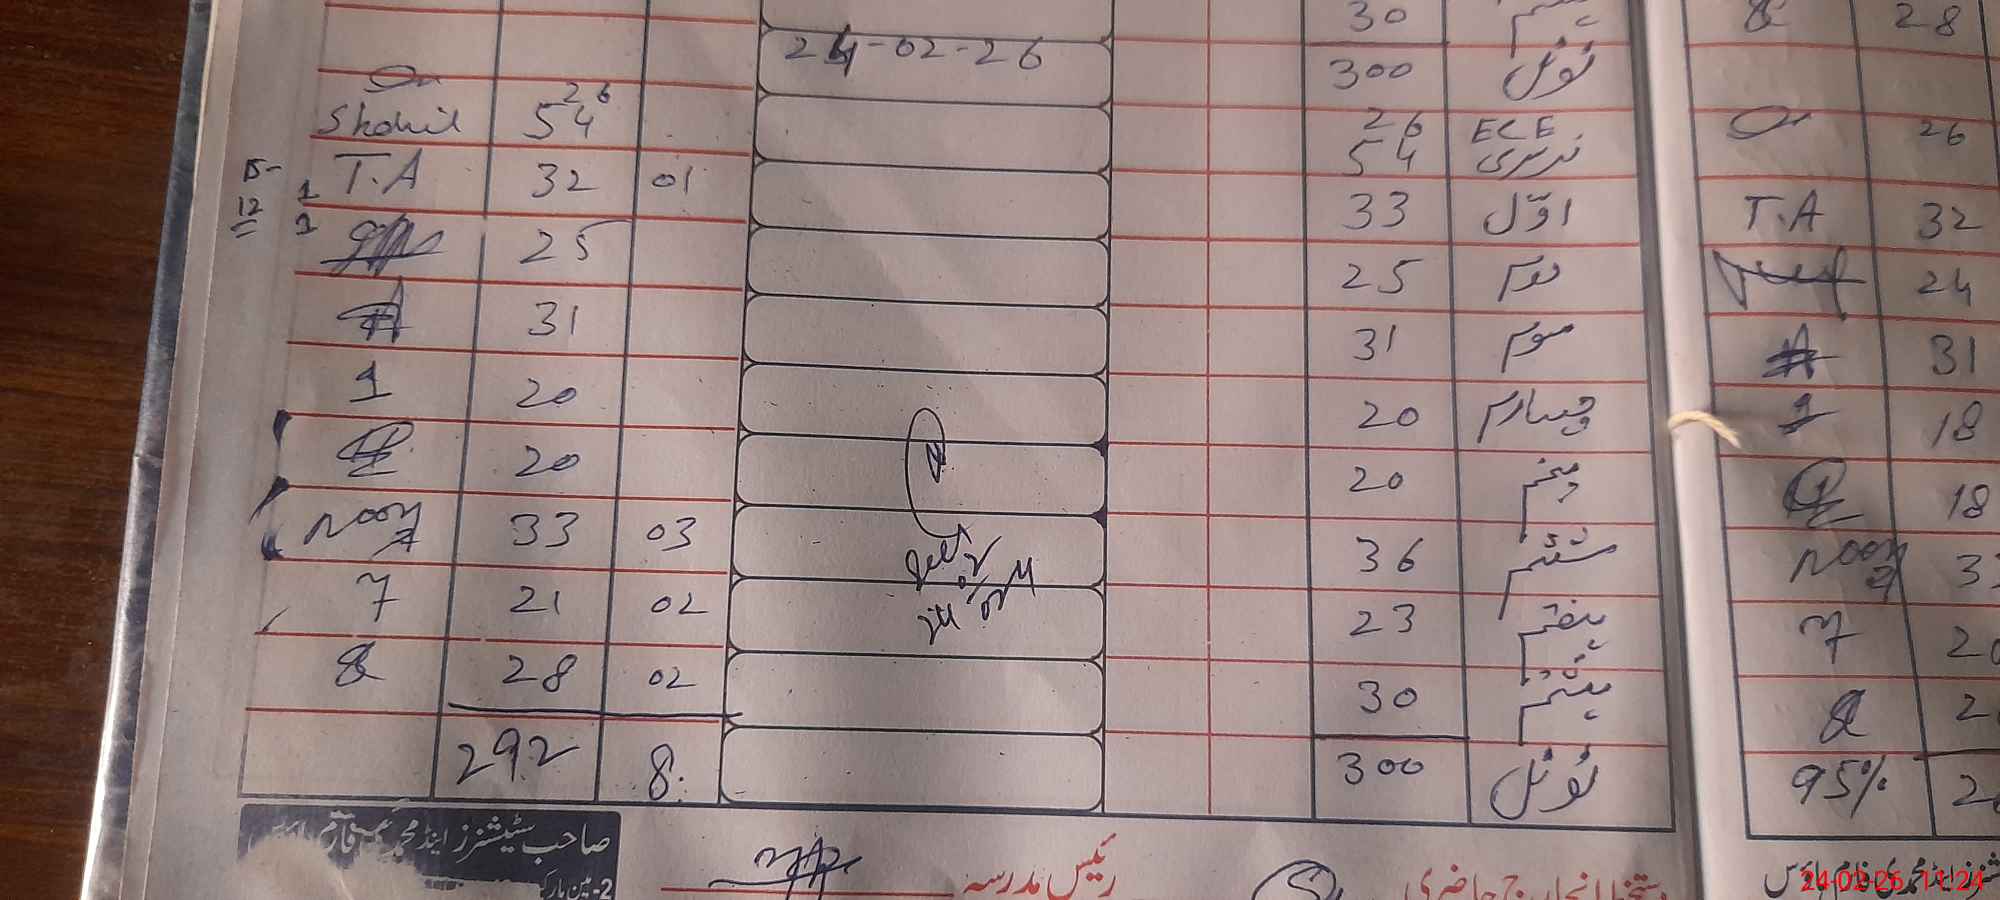 30 ہشتم 8 28
24-02-26
300 ٹوٹل
26 26 ECE 26
Shakil 54 54 نرسری
15- 1 T.A 32 01 33 اوّل T.A 32
12 1 25 25 دوم 24
31 31 سوم 31
1 20 20 چہارم 1 18
20 20 پنجم 18
noor 33 03 36 ششم noor
7 21 02 23 ہفتم 7
8 28 02 30 ہشتم 8
292 8 300 ٹوٹل 95%
صاحب سٹیشنرز اینڈ محمدی فارم ہاؤس
2-مین بازار
رئیس مدرسہ
دستخط انچارج حاضری
سٹیشنرز اینڈ محمدی فارم ہاؤس
24-02-26 11:24